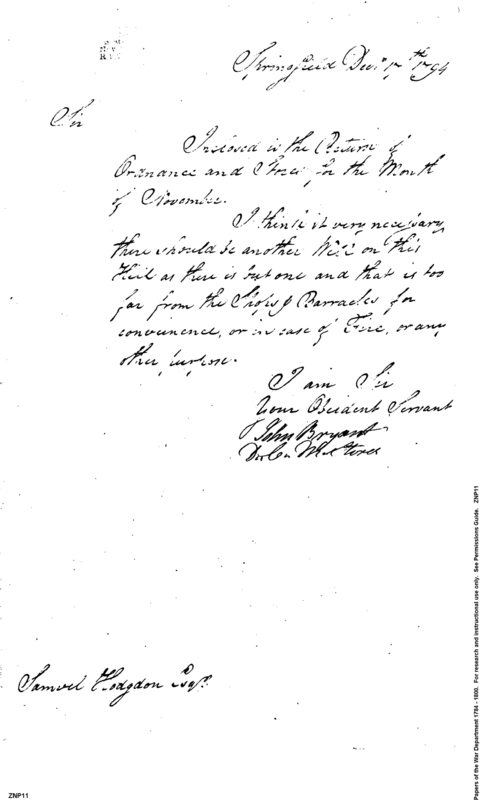 Springfield Decr 1th 1794
Sir
Inclosed is the Return of
Ordnance and Stores for the Month
of November.
I think it very necessary
there should be another Well on this
Hill as there is but one and that is too
far from the Shops & Barracks for
convenience, or in case of Fire, or any
other purpose.
I am Sir
Your Obedient Servant
John Bryant
Samuel Hodgdon Esqr.
ZNP11
Papers of the War Department 1784 - 1800. For research and instructional use only. See Permissions Guide. ZNP11